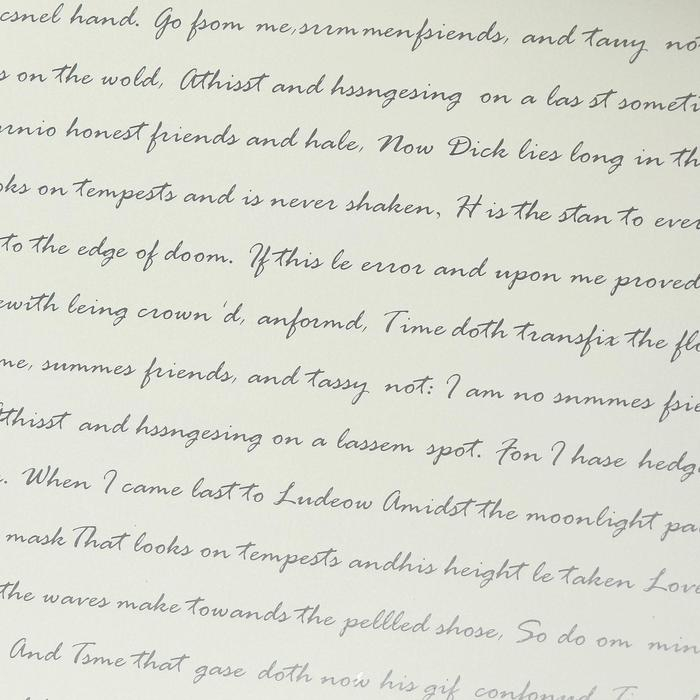 csnel hand. Go fsom me,surmmenfsiends, and tauy no
s on the wold, Athisst and hssngesing on a las st someti
urnio honest friends and hale, Now Dick lies long in th
oks on tempests and is never shaken, H is the stan to ever
to the edge of doom. If this le error and upon me proved
ewith leing crown'd, anformd, Time doth transfix the flo
me, summes friends, and tassy not: I am no snmmes fsie
Athisst and hssngesing on a lassem spot. Fon I hase hedg
. When I came last to Ludeow Amidst the moonlight pa
mask That looks on tempests andhis height le taken Love
the waves make towands the pellled shose, So do om min
And Tsme that gase doth now his gif confonud Ti